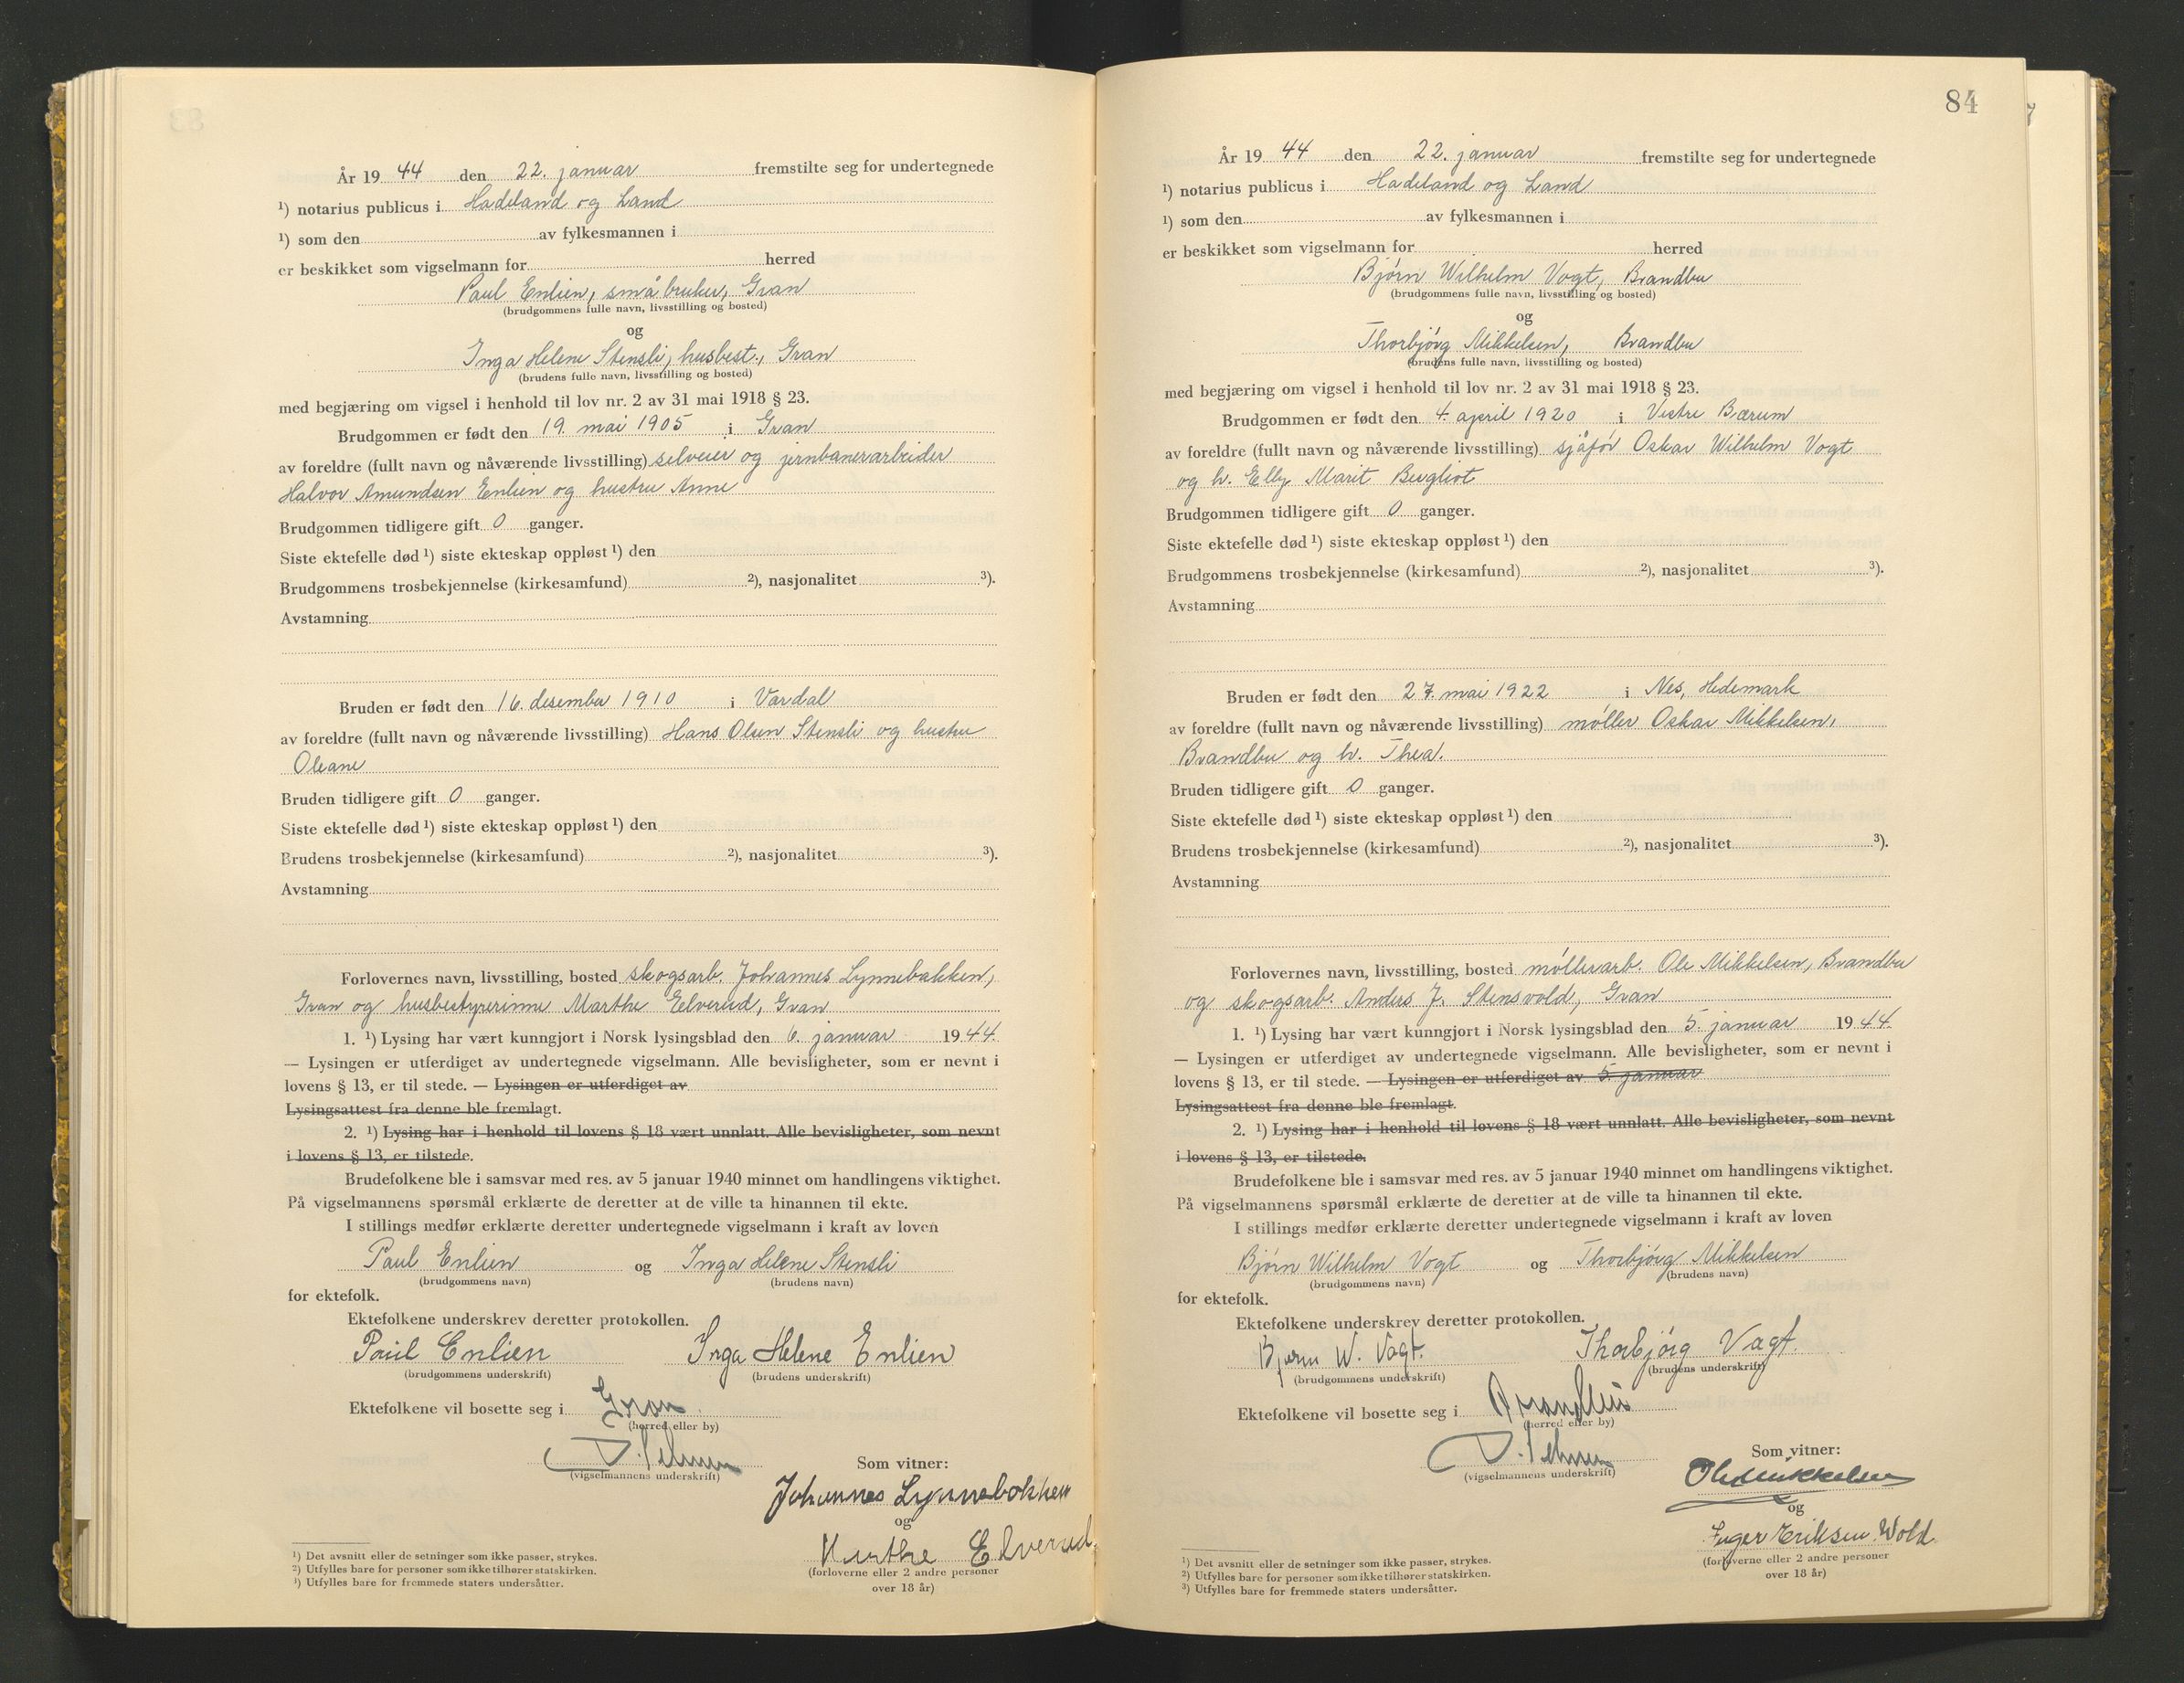 År 19 44 den 22. januar fremstilte seg for undertegnede
¹) notarius publicus i Hadeland og Land
¹) som den av fylkesmannen i
er beskikket som vigselmann for herred
Paul Enlien, småbruker, Gran
(brudgommens fulle navn, livsstilling og bosted)
og
Inga Helene Stensli, husbest., Gran
(brudens fulle navn, livsstilling og bosted)
med begjæring om vigsel i henhold til lov nr. 2 av 31 mai 1918 § 23.
Brudgommen er født den 19. mai 1905 i Gran
av foreldre (fullt navn og nåværende livsstilling) selveier og jernbanearbeider
Halvor Amundsen Enlien og hustru Anne
Brudgommen tidligere gift 0 ganger.
Siste ektefelle død ¹) siste ekteskap oppløst ¹) den
Brudgommens trosbekjennelse (kirkesamfund) ²), nasjonalitet ³).
Avstamning
Bruden er født den 16. desember 1910 i Vardal
av foreldre (fullt navn og nåværende livsstilling) Hans Olsen Stensli og hustru
Oleane
Bruden tidligere gift 0 ganger.
Siste ektefelle død ¹) siste ekteskap oppløst ¹) den
Brudens trosbekjennelse (kirkesamfund) ²), nasjonalitet ³).
Avstamning
Forlovernes navn, livsstilling, bosted skogsarb. Johannes Lynnebakken,
Gran og husbestyrerinne Marthe Elverud, Gran
1. ¹) Lysing har vært kunngjort i Norsk lysingsblad den 6. januar 1944.
— Lysingen er utferdiget av undertegnede vigselmann. Alle bevisligheter, som er nevnt i
lovens § 13, er til stede. — Lysingen er utferdiget av
Lysingsattest fra denne ble fremlagt.
2. ¹) Lysing har i henhold til lovens § 18 vært unnlatt. Alle bevisligheter, som nevnt
i lovens § 13, er tilstede.
Brudefolkene ble i samsvar med res. av 5 januar 1940 minnet om handlingens viktighet.
På vigselmannens spørsmål erklærte de deretter at de ville ta hinannen til ekte.
I stillings medfør erklærte deretter undertegnede vigselmann i kraft av loven
Paul Enlien og Inga Helene Stensli
(brudgommens navn) (brudens navn)
for ektefolk.
Ektefolkene underskrev deretter protokollen.
Paul Enlien Inga Helene Enlien
(brudgommens underskrift) (brudens underskrift)
Ektefolkene vil bosette seg i Gran.
(herred eller by)
(vigselmannens underskrift)
Som vitner:
Johannes Lynnebakken
og
Marthe Elverud.
(forloverne eller 2 andre personer
over 18 år)
¹) Det avsnitt eller de setninger som ikke passer, strykes.
²) Utfylles bare for personer som ikke tilhører statskirken.
³) Utfylles bare for fremmede staters undersåtter.
84
År 19 44 den 22. januar fremstilte seg for undertegnede
¹) notarius publicus i Hadeland og Land
¹) som den av fylkesmannen i
er beskikket som vigselmann for herred
Bjørn Wilhelm Vogt, Brandbu
(brudgommens fulle navn, livsstilling og bosted)
og
Thorbjørg Mikkelsen, Brandbu
(brudens fulle navn, livsstilling og bosted)
med begjæring om vigsel i henhold til lov nr. 2 av 31 mai 1918 § 23.
Brudgommen er født den 4. april 1920 i Vestre Bærum
av foreldre (fullt navn og nåværende livsstilling) sjåfør Oskar Wilhelm Vogt
og h. Elly Marit Bergliot
Brudgommen tidligere gift 0 ganger.
Siste ektefelle død ¹) siste ekteskap oppløst ¹) den
Brudgommens trosbekjennelse (kirkesamfund) ²), nasjonalitet ³).
Avstamning
Bruden er født den 27. mai 1922 i Nes, Hedemark
av foreldre (fullt navn og nåværende livsstilling) møller Oskar Mikkelsen,
Brandbu og h. Thea.
Bruden tidligere gift 0 ganger.
Siste ektefelle død ¹) siste ekteskap oppløst ¹) den
Brudens trosbekjennelse (kirkesamfund) ²), nasjonalitet ³).
Avstamning
Forlovernes navn, livsstilling, bosted møllerarb. Ole Mikkelsen, Brandbu
og skogsarb. Anders J. Stensvold, Gran
1. ¹) Lysing har vært kunngjort i Norsk lysingsblad den 5. januar 1944.
— Lysingen er utferdiget av undertegnede vigselmann. Alle bevisligheter, som er nevnt i
lovens § 13, er til stede. — Lysingen er utferdiget av 5. januar
Lysingsattest fra denne ble fremlagt.
2. ¹) Lysing har i henhold til lovens § 18 vært unnlatt. Alle bevisligheter, som nevnt
i lovens § 13, er tilstede.
Brudefolkene ble i samsvar med res. av 5 januar 1940 minnet om handlingens viktighet.
På vigselmannens spørsmål erklærte de deretter at de ville ta hinannen til ekte.
I stillings medfør erklærte deretter undertegnede vigselmann i kraft av loven
Bjørn Wilhelm Vogt og Thorbjørg Mikkelsen
(brudgommens navn) (brudens navn)
for ektefolk.
Ektefolkene underskrev deretter protokollen.
Bjørn W. Vogt. Thorbjørg Vogt.
(brudgommens underskrift) (brudens underskrift)
Ektefolkene vil bosette seg i Brandbu
(herred eller by)
(vigselmannens underskrift)
Som vitner:
Ole Mikkelsen
og
Inger Eriksen Wold.
(forloverne eller 2 andre personer
over 18 år)
¹) Det avsnitt eller de setninger som ikke passer, strykes.
²) Utfylles bare for personer som ikke tilhører statskirken.
³) Utfylles bare for fremmede staters undersåtter.